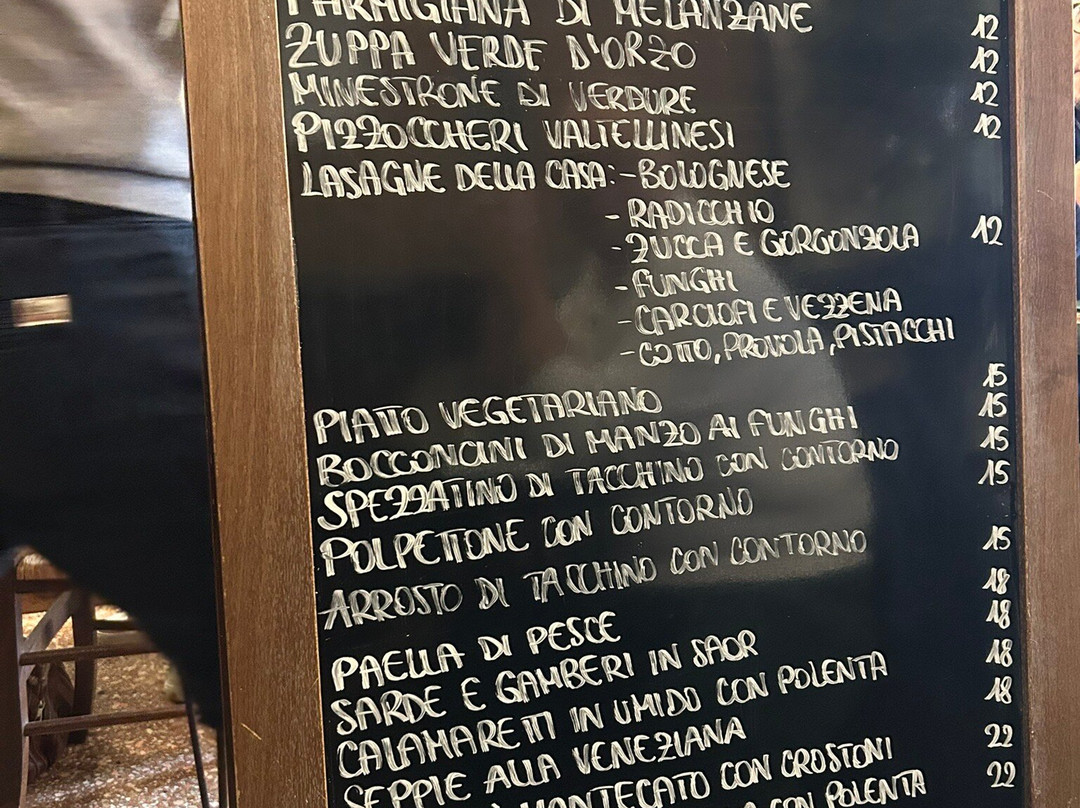 PARMIGIANA DI MELANZANE 12
ZUPPA VERDE D'ORZO 12
MINESTRONE DI VERDURE 12
PIZZOCCHERI VALTELLINESI 12
LASAGNE DELLA CASA: - BOLOGNESE
- RADICCHIO
- ZUCCA E GORGONZOLA 12
- FUNGHI
- CARCIOFI E VEZZENA
- COTTO, PROVOLA, PISTACCHI
PIATTO VEGETARIANO 15
BOCCONCINI DI MANZO AI FUNGHI 15
SPEZZATINO DI TACCHINO CON CONTORNO 15
POLPETTONE CON CONTORNO 15
ARROSTO DI TACCHINO CON CONTORNO 15
PAELLA DI PESCE 18
SARDE E GAMBERI IN SAOR 18
CALAMARETTI IN UMIDO CON POLENTA 18
SEPPIE ALLA VENEZIANA 18
MANTECATO CON CROSTONI 22
CON POLENTA 22